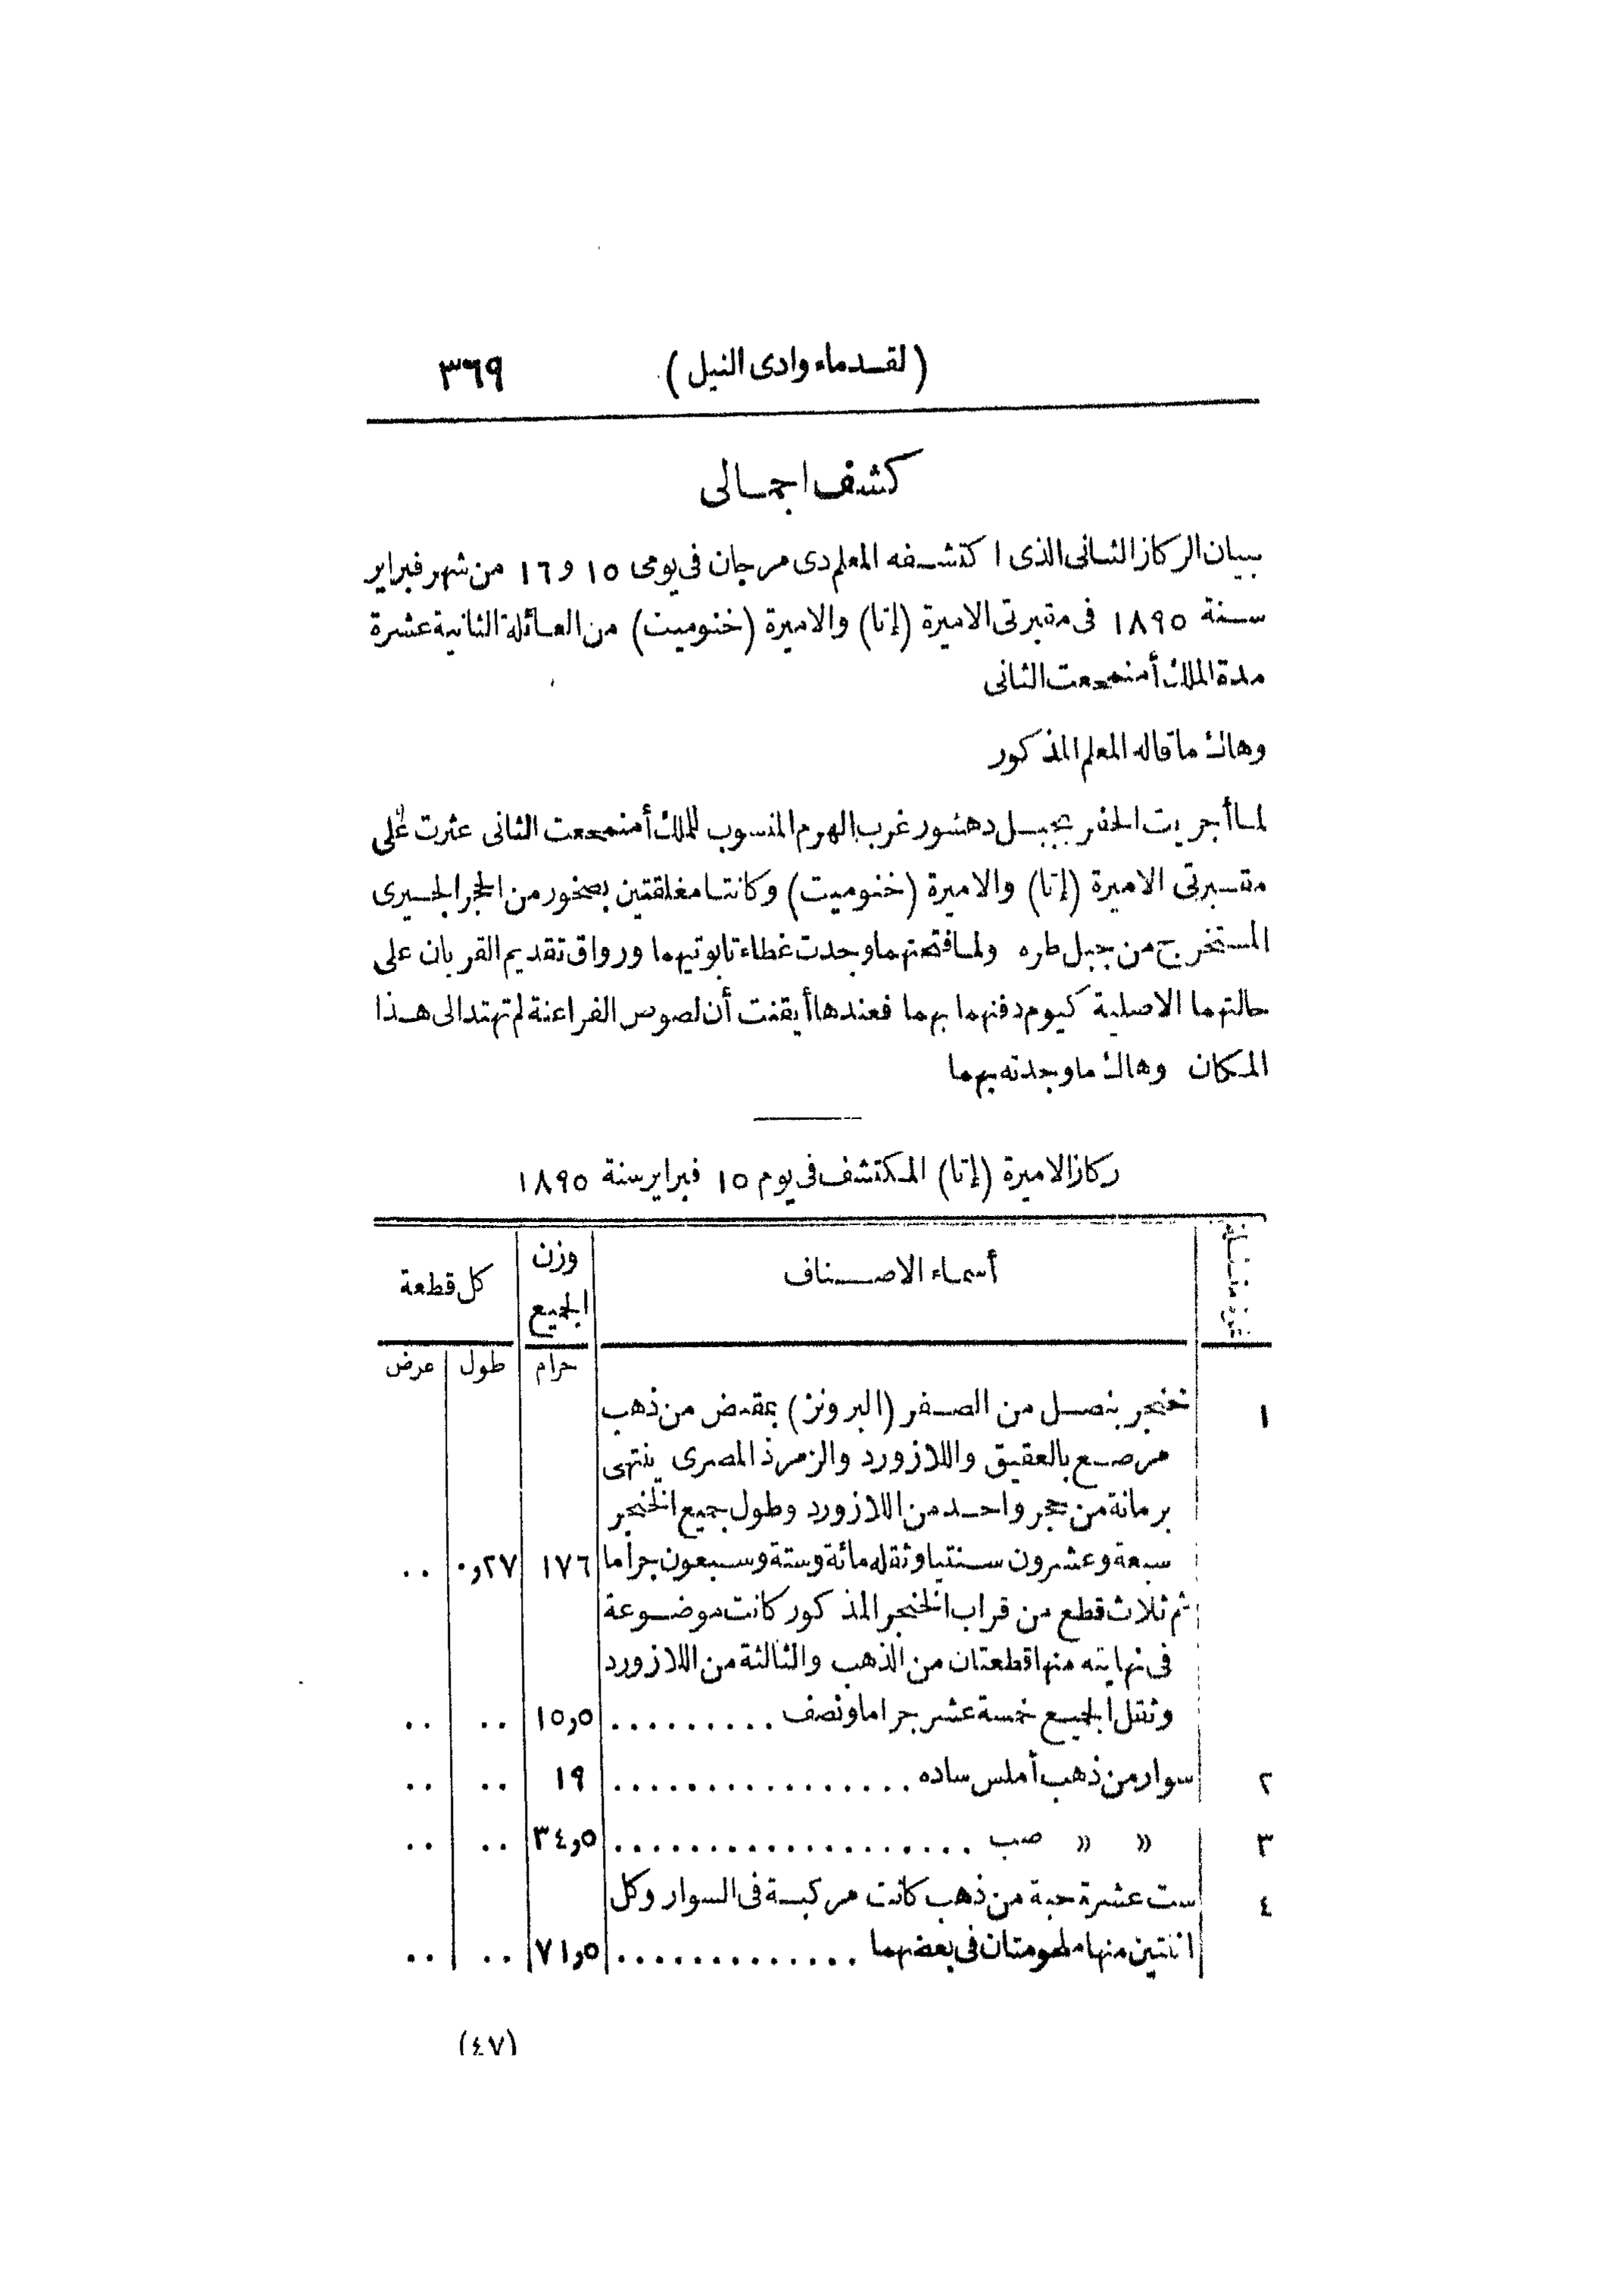 (لقدماء وادى النيل) ٣٦٩
كشف اجمالى
ببيان الركاز الثانى الذى اكتشفه المعلم دى مرجان فى يومى ١٥ و ١٦ من شهر فبراير
سنة ١٨٩٥ فى مقبرتى الاميرة (إتا) والاميرة (خنوميت) من العائلة الثانية عشرة
مدة الملك أمنمحعت الثانى
وهاك ما قاله المعلم المذكور
لما أجريت الحفر بجبل دهشور غرب الهرم المنسوب للملك أمنمحعت الثانى عثرت على
مقبرتى الاميرة (إتا) والاميرة (خنوميت) وكانتا مغلقتين بصخور من الحجر الجيرى
المستخرج من جبل طره ولما فتحتهما وجدت غطاء تابوتيهما ورواق تقديم القربان على
حالتهما الاصلية كيوم دفنهما بهما فعندها أيقنت أن لصوص الفراعنة لم تهتد الى هذا
المكان وهاك ما وجدته بهما
ركاز الاميرة (إتا) المكتشف فى يوم ١٥ فبراير سنة ١٨٩٥
أسماء الاصناف وزن الجميع كل قطعة
جرام طول عرض
١ خنجر بنصل من الصفر (البرونز) بمقبض من ذهب
مرصع بالعقيق واللازورد والزمرذ المصرى ينتهى
برمانة من حجر واحد من اللازورد وطول جميع الخنجر
سبعة وعشرون سنتيا وثقله مائة وستة وسبعون جراما ١٧٦ ٠٫٢٧ ..
ثم ثلاث قطع من قراب الخنجر المذكور كانت موضوعة
فى نهايته منها قطعتان من الذهب والثالثة من اللازورد
وثقل الجميع خمسة عشر جراما ونصف .......... ١٥٫٥ .. ..
٢ سوار من ذهب أملس ساده ................ ١٩ .. ..
٣ » » صب ................... ٣٤٫٥ .. ..
٤ ست عشرة حبة من ذهب كانت مركبة فى السوار وكل
اثنتين منها ملحومتان فى بعضهما ............. ٧١٫٥ .. ..
(٤٧)